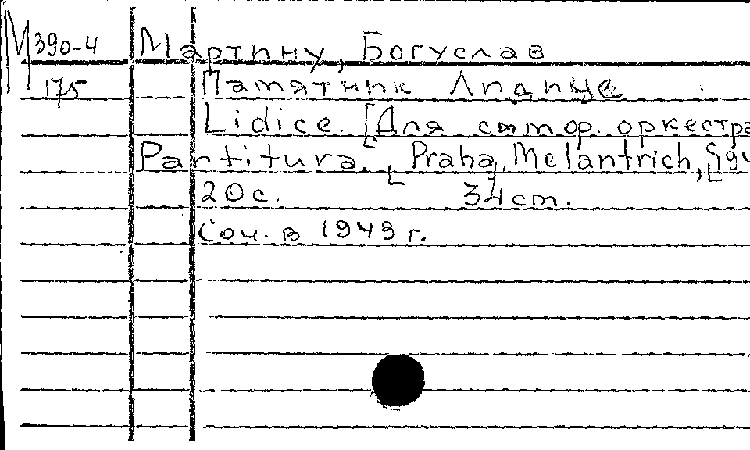 М 390-4 Мартину, Богуслав
175 Памятник Лидице
Lidice. [Для симфор. оркестра
Partitura. Praha, Melantrich,
20 с. 34 cm.
Соч. в 1943 г.